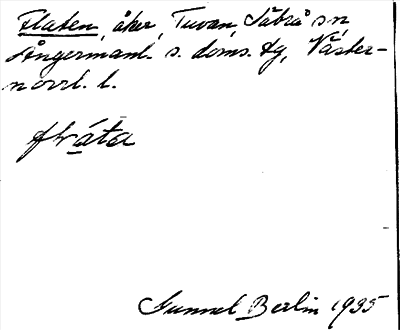 Flaten, åker, Tuvan, Säbrå sn
Ångermanl. s. doms. tg, Väster-
norrl. l.
Gunnel Berlin 1935